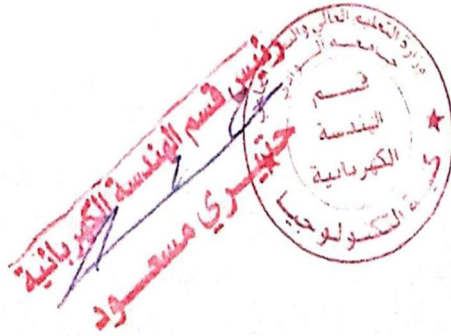 رئيس قسم الهندسة الكهربائية
خنيري مسعود
وزارة التعليم العالي
جامعة الوادي
قسم
الهندسة
الكهربائية
كلية التكنولوجيا